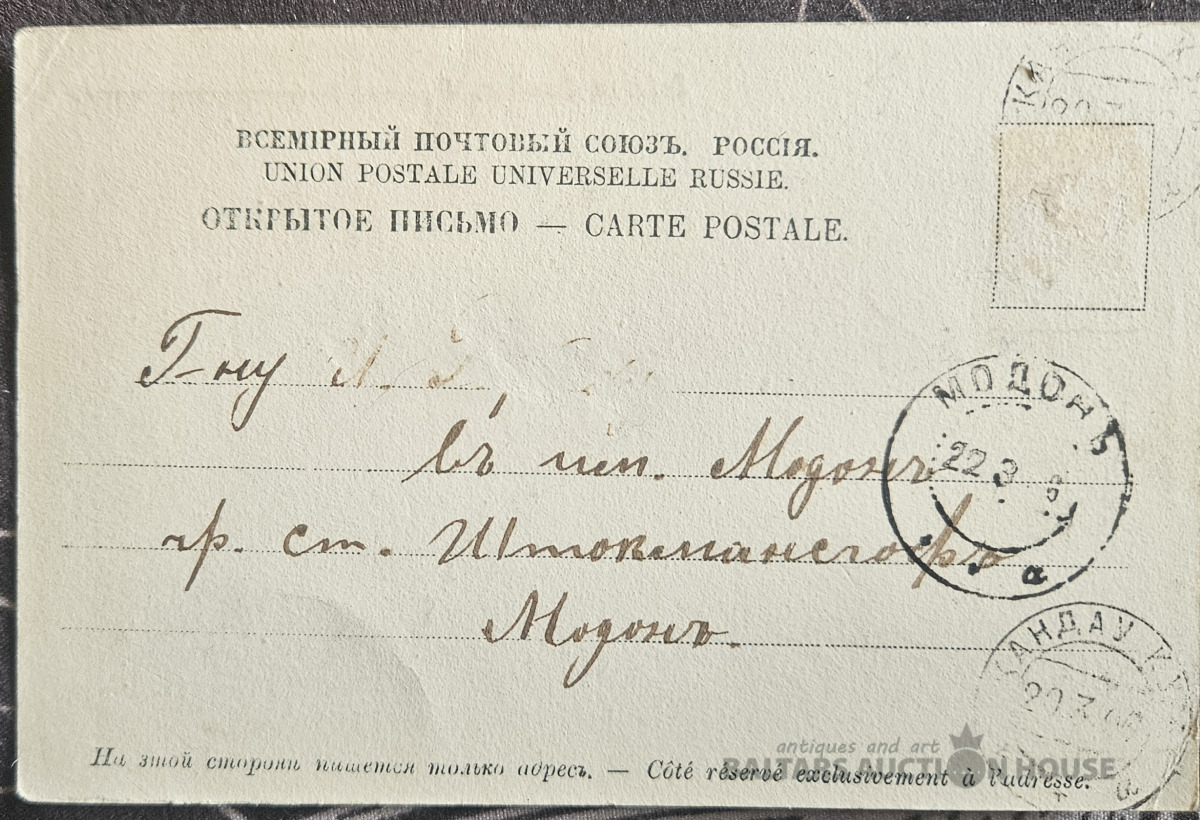 ВСЕМІРНЫЙ ПОЧТОВЫЙ СОЮЗЪ. РОССІЯ.
UNION POSTALE UNIVERSELLE RUSSIE.
ОТКРЫТОЕ ПИСЬМО — CARTE POSTALE.
Г-ну
МОДОНЪ
22 3
а
въ им. Модонъ
чр. ст. Штокмансгофъ
Модонъ.
КАНДАУ КУР
20.3
На этой сторонѣ пишется только адресъ. — Côté réservé exclusivement à l'adresse.
antiques and art
BALTARS AUCTION HOUSE